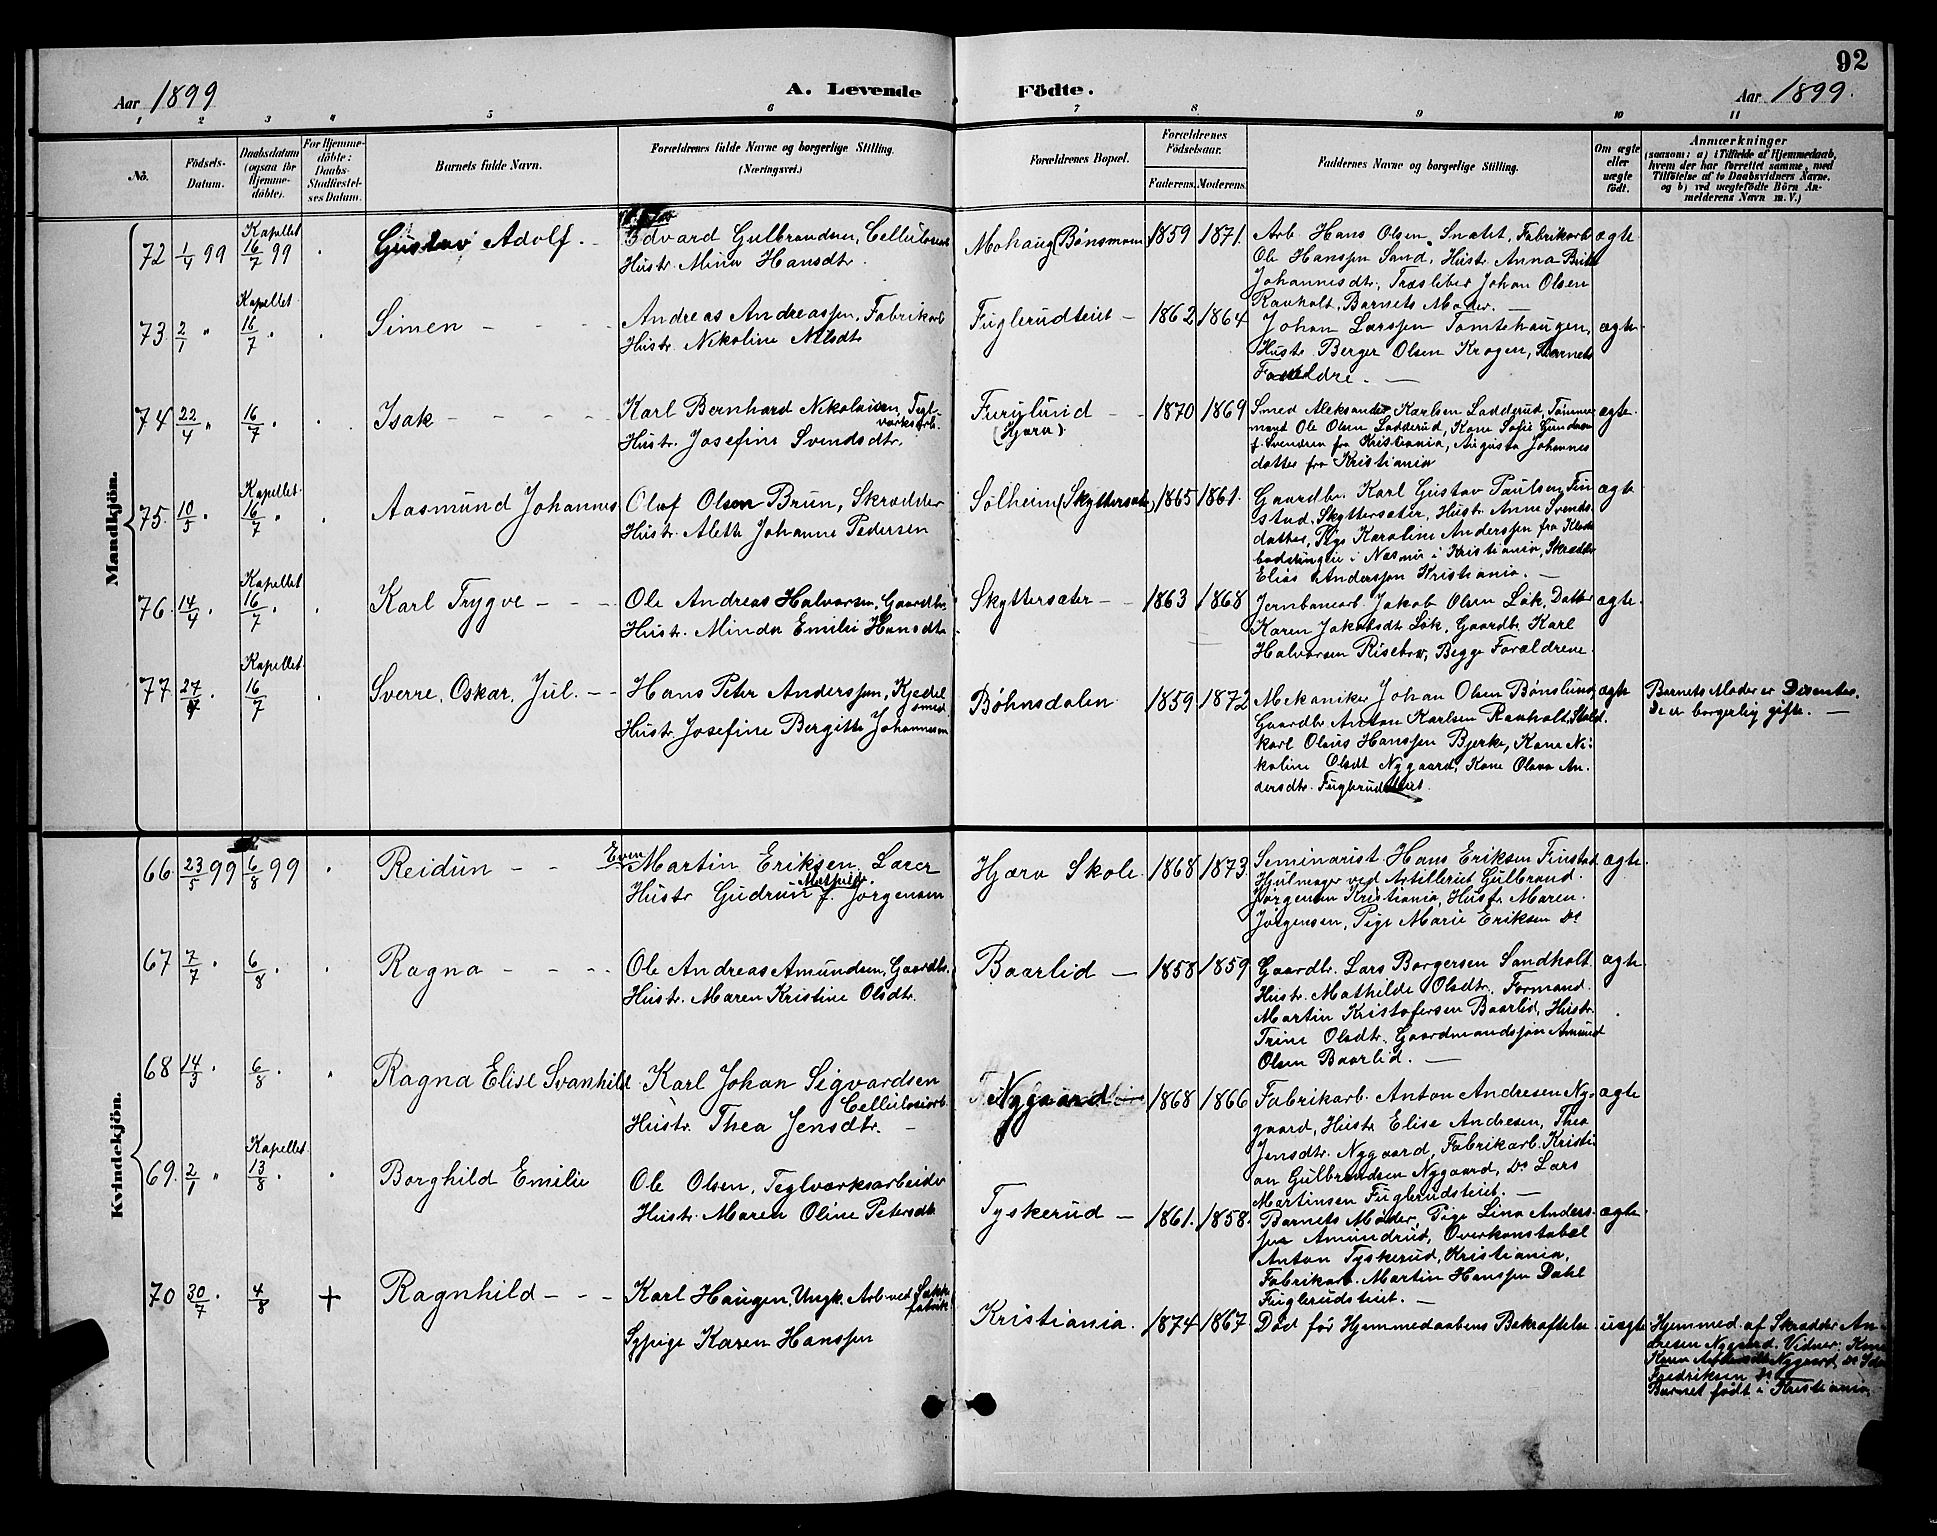 92
Aar 1899
A. Levende Fødte.
Aar 1899.
1 2 3 4 5 6 7 8. 9 10 11
No.
Fødsels-
Datum.
Daabsdatum
(ogsaa for
Hjemme-
døbte).
For Hjemme-
døbte:
Daabs-
Stadfæstel-
ses Datum.
Barnets fulde Navn.
Forældrenes fulde Navne og borgerlige Stilling.
(Næringsvei.)
Forældrenes Bopæl.
Forældrenes
Fødselsaar.
Faderens. Moderens.
Faddernes Navne og borgerlige Stilling.
Om ægte
eller
uægte
født.
Anmærkninger
(saasom: a) i Tilfælde af Hjemmedaab,
hvem der har forrettet samme, med
Tilføielse af to Daabsvidners Navne,
og b) ved uægtefødte Børn An-
melderens Navn m. V.)
Mandkjøn.
72 1/4 99
Kapellet
16/7 99
Gustav Adolf.
Edvard Gulbrandsen, Cellulosearb
Hustr. Mina Hansdtr.
Mohaug (Bønsmoen
1859 1871.
Arb. Hans Olsen Snætet, Fabrikarb
Ole Hanssen Sand, Hustr. Anna Britte
Johannesdtr., Træsliber Johan Olsen
Ravholt, Barnets Moder. —
ægte
73 2/1 "
Kapellet
16/7 "
Simen - - - -
Andreas Andreassen, Fabrikarb
Hustr. Nikoline Nilsdtr
Fuglerudteiet —
1862 1864
Johan Larssen Tomtehaugen,
Hustr. Berger Olsen Krogen, Barnets
Forældre. —
ægte
74 22/4 "
16/7 "
Isak - - - -
Karl Bernhard Nikolaisen, Tegl-
værksarb.
Hustr. Josefine Svendsdtr.
Furulund - -
(Hjera)
1870 1869
Smed Aleksander Karlsen Ladderud, Tømmer
mand Ole Olsen Ladderud, Kone Sofie Gundersen
f. Svendsen fra Kristiania, Augusta Johannes
datter fra Kristiania
ægte
75. 10/5 "
Kapellet
16/7 "
Aasmund Johannes
Olaf Olsen Brun, Skrædder
Hustr. Aleth Johanne Pedersen
Solheim (Skyttersæter)
1865 1861.
Gaardbr. Karl Gustav Paulsen Fin
stad, Skyttersæter, Hustr. Anne Svends
datter, Pige Karoline Anderssen fra
i Kristiania, Skrædder
Elias Anderssen Kristiania. —
ægte
76 14/4 "
Kapellet
16/7 "
Karl Trygve - - -
Ole Andreas Halvorsen, Gaardbr.
Hustr. Minda Emilie Hansdtr.
Skyttersæter - -
1863 1868
Jernbanearb. Jakob Olsen Løk, Datter
Karen Jakobsdtr Løk, Gaardbr. Karl
Halvorsen Risebro, Begge Forældrene
ægte
77 27/4 "
Kapellet
16/7
Sverre, Oskar, Jul. - -
Hans Peter Anderssen, Kjedel
smed
Hustr. Josefine Bergitte Johannesen
Bøhnsdalen
1859 1872
Mekaniker Johan Olsen Bønslund,
Gaardbr. Anton Karlsen Ravholt, Stald
karl Olaus Hanssen Bjerke, Kone Ni-
koline Olsdt Nygaard, Kone Olava An-
dersdtr. Fuglerudteiet.
ægte
Barnets Moder er Disenter.
De er borgerlig gifte. —
Kvindekjøn.
66 23/5 99
6/8 99
Reidun - - -
Even Martin Eriksen, Lærer
Mathilde
Hustr Gudrun f. Jørgensen
Hjera Skole
1868 1873.
Seminarist Hans Eriksen Finstad
Hjulmager ved Artilleriet Gulbrand
Jørgensen Kristiania, Hustr. Maren
Jørgensen, Pige Marie Eriksen Do
ægte
67 7/7 "
6/8 "
Ragna - - -
Ole Andreas Amundsen, Gaardbr.
Hustr. Maren Kristine Olsdtr.
Baarlid —
1858 1859
Gaardbr. Lars Borgersen Sandholt
Hustr. Mathilde Olsdtr. Formand
Martin Kristofersen Baarlid, Hustr.
Trine Olsdtr. Gaardmandssøn Amund
Olsen Baarlid. —
ægte
68 14/3 "
6/8 "
Ragna Elise Svanhild
Karl Johan Sigvardsen
Cellulosearb
Hustr. Thea Jensdtr. -
Nygaard —
1868 1866
Fabrikarb. Anton Andresen Ny-
gaard, Hustr Elise Andresen, Thea
Jensdtr. Nygaard, Fabrikarb. Kristi-
an Gulbrandsen Nygaard, Do Lars
Martinsen Fuglerudsteiet. —
ægte
69. 2/1 "
Kapellet
13/8 "
Borghild Emilie
Ole Olsen, Teglværksarbeider
Hustr. Maren Oline Petersdtr
Tyskerud —
1861. 1858.
Barnets Moder, Pige Lina Anders-
sen Amundrud, Overkonstabel
Anton Tyskerud, Kristiania,
Fabrikarb. Martin Hanssen Dahl
Fuglerudsteiet. —
ægte
70 30/7 "
4/8
+
Ragnhild - - -
Karl Haugen, Ungk. Arb. ved Sække
fabrik
Sypige Karen Hanssen
Kristiania.
1874 1867.
Død før Hjemmedaabens Bekræftelse
uægte
Hjemmed. af Skrædder An-
dresen Nygaard. Vidner: Kone
Karen Nygaard, Do Ida
Fredriksen, Do
Barnet født i Kristiania.